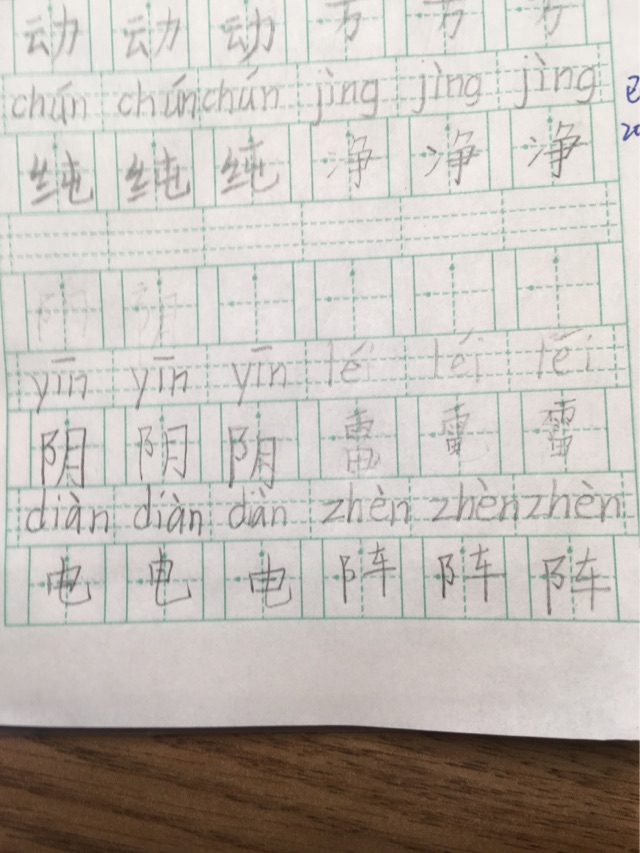 动 动 动
chún chún chún jìng jìng jìng
纯 纯 纯 净 净 净
yīn yīn yīn
阴 阴 阴
diàn diàn dàn zhèn zhèn zhèn
电 电 电 阵 阵 阵